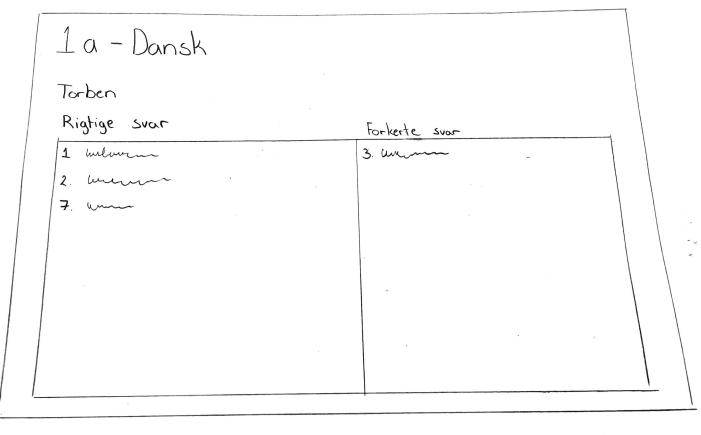 1a - Dansk
Torben
Rigtige svar
Forkerte svar
1
2.
7.
3.